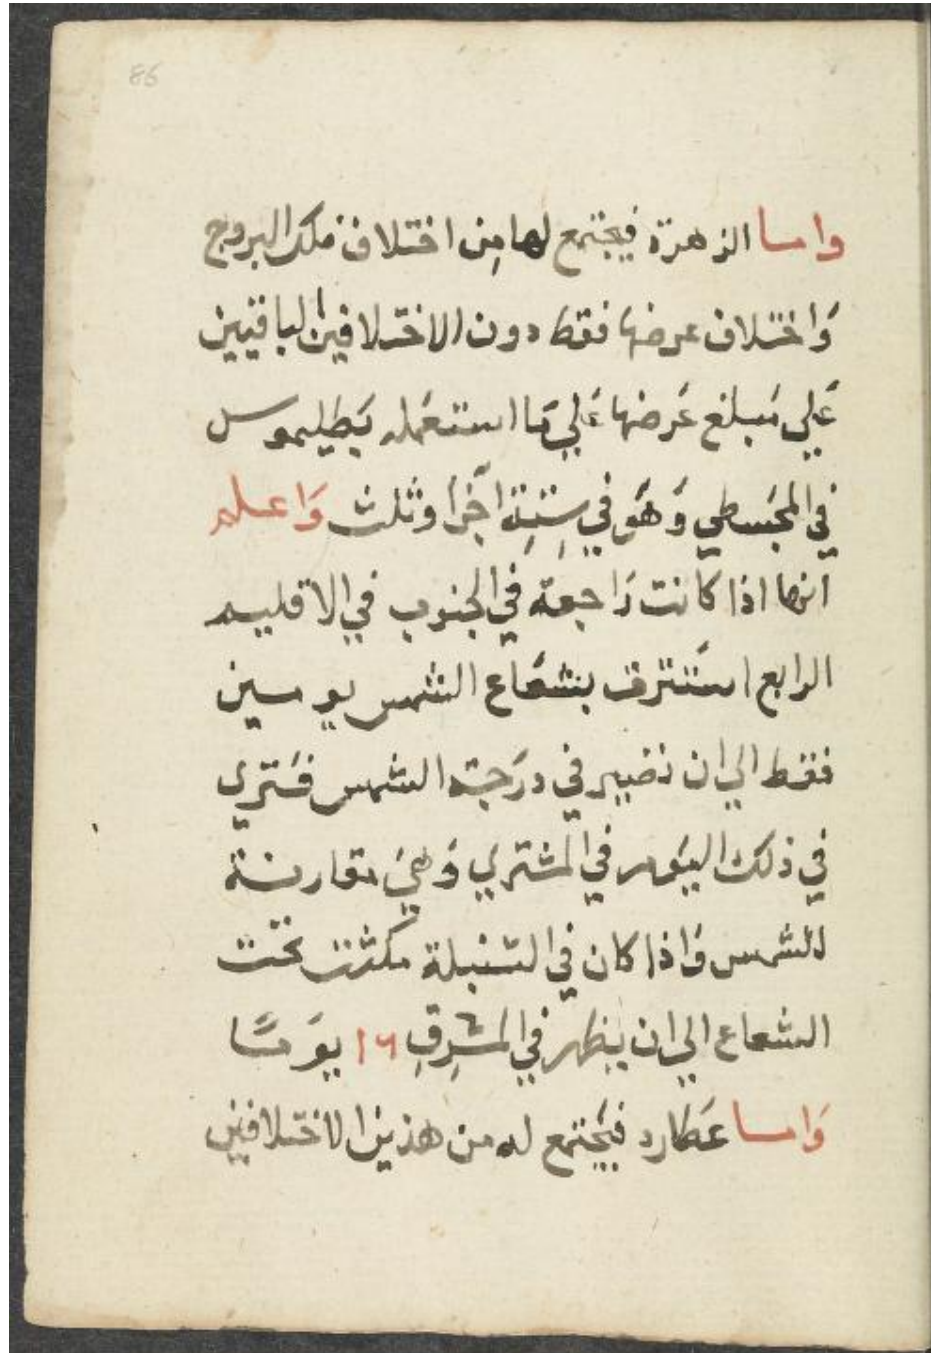 86
واما الزهرة فيجتمع لها مِن اختلاف فلك البروج
وَاختلاف عرضها فقط دون الاختلافين الباقيين
عَلي مَبلغ عَرضها عَلي مَا استعمَله بَطليموس
في المجَسطي وَهَو في سِتِة اَجزا وثلث وَاعلم
انها اذا كانت رَاجعة في الجنوب في الاقليم
الرابع استَترت بشعَاع الشمس يومين
فقط الي ان تصير في درَجة الشمس فَتري
في ذلك اليَوم في المشتري وَهيَ مقارنة
للشمس وَاذا كان في السَنبلة مكثت تحت
الشعاع الي ان يظهر في المشرِقِ ١٦ يوَمًا
وَاما عَطارد فيَجتمع له من هذين الاختلافين